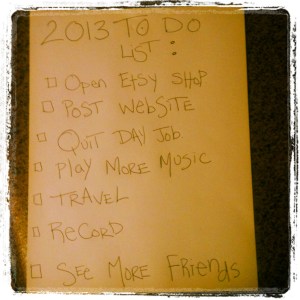 2013 TO DO
LIST:
OPEN ETSY SHOP
POST WEBSITE
QUIT DAY JOB
PLAY MORE MUSIC
TRAVEL
RECORD
SEE MORE FRIENDS